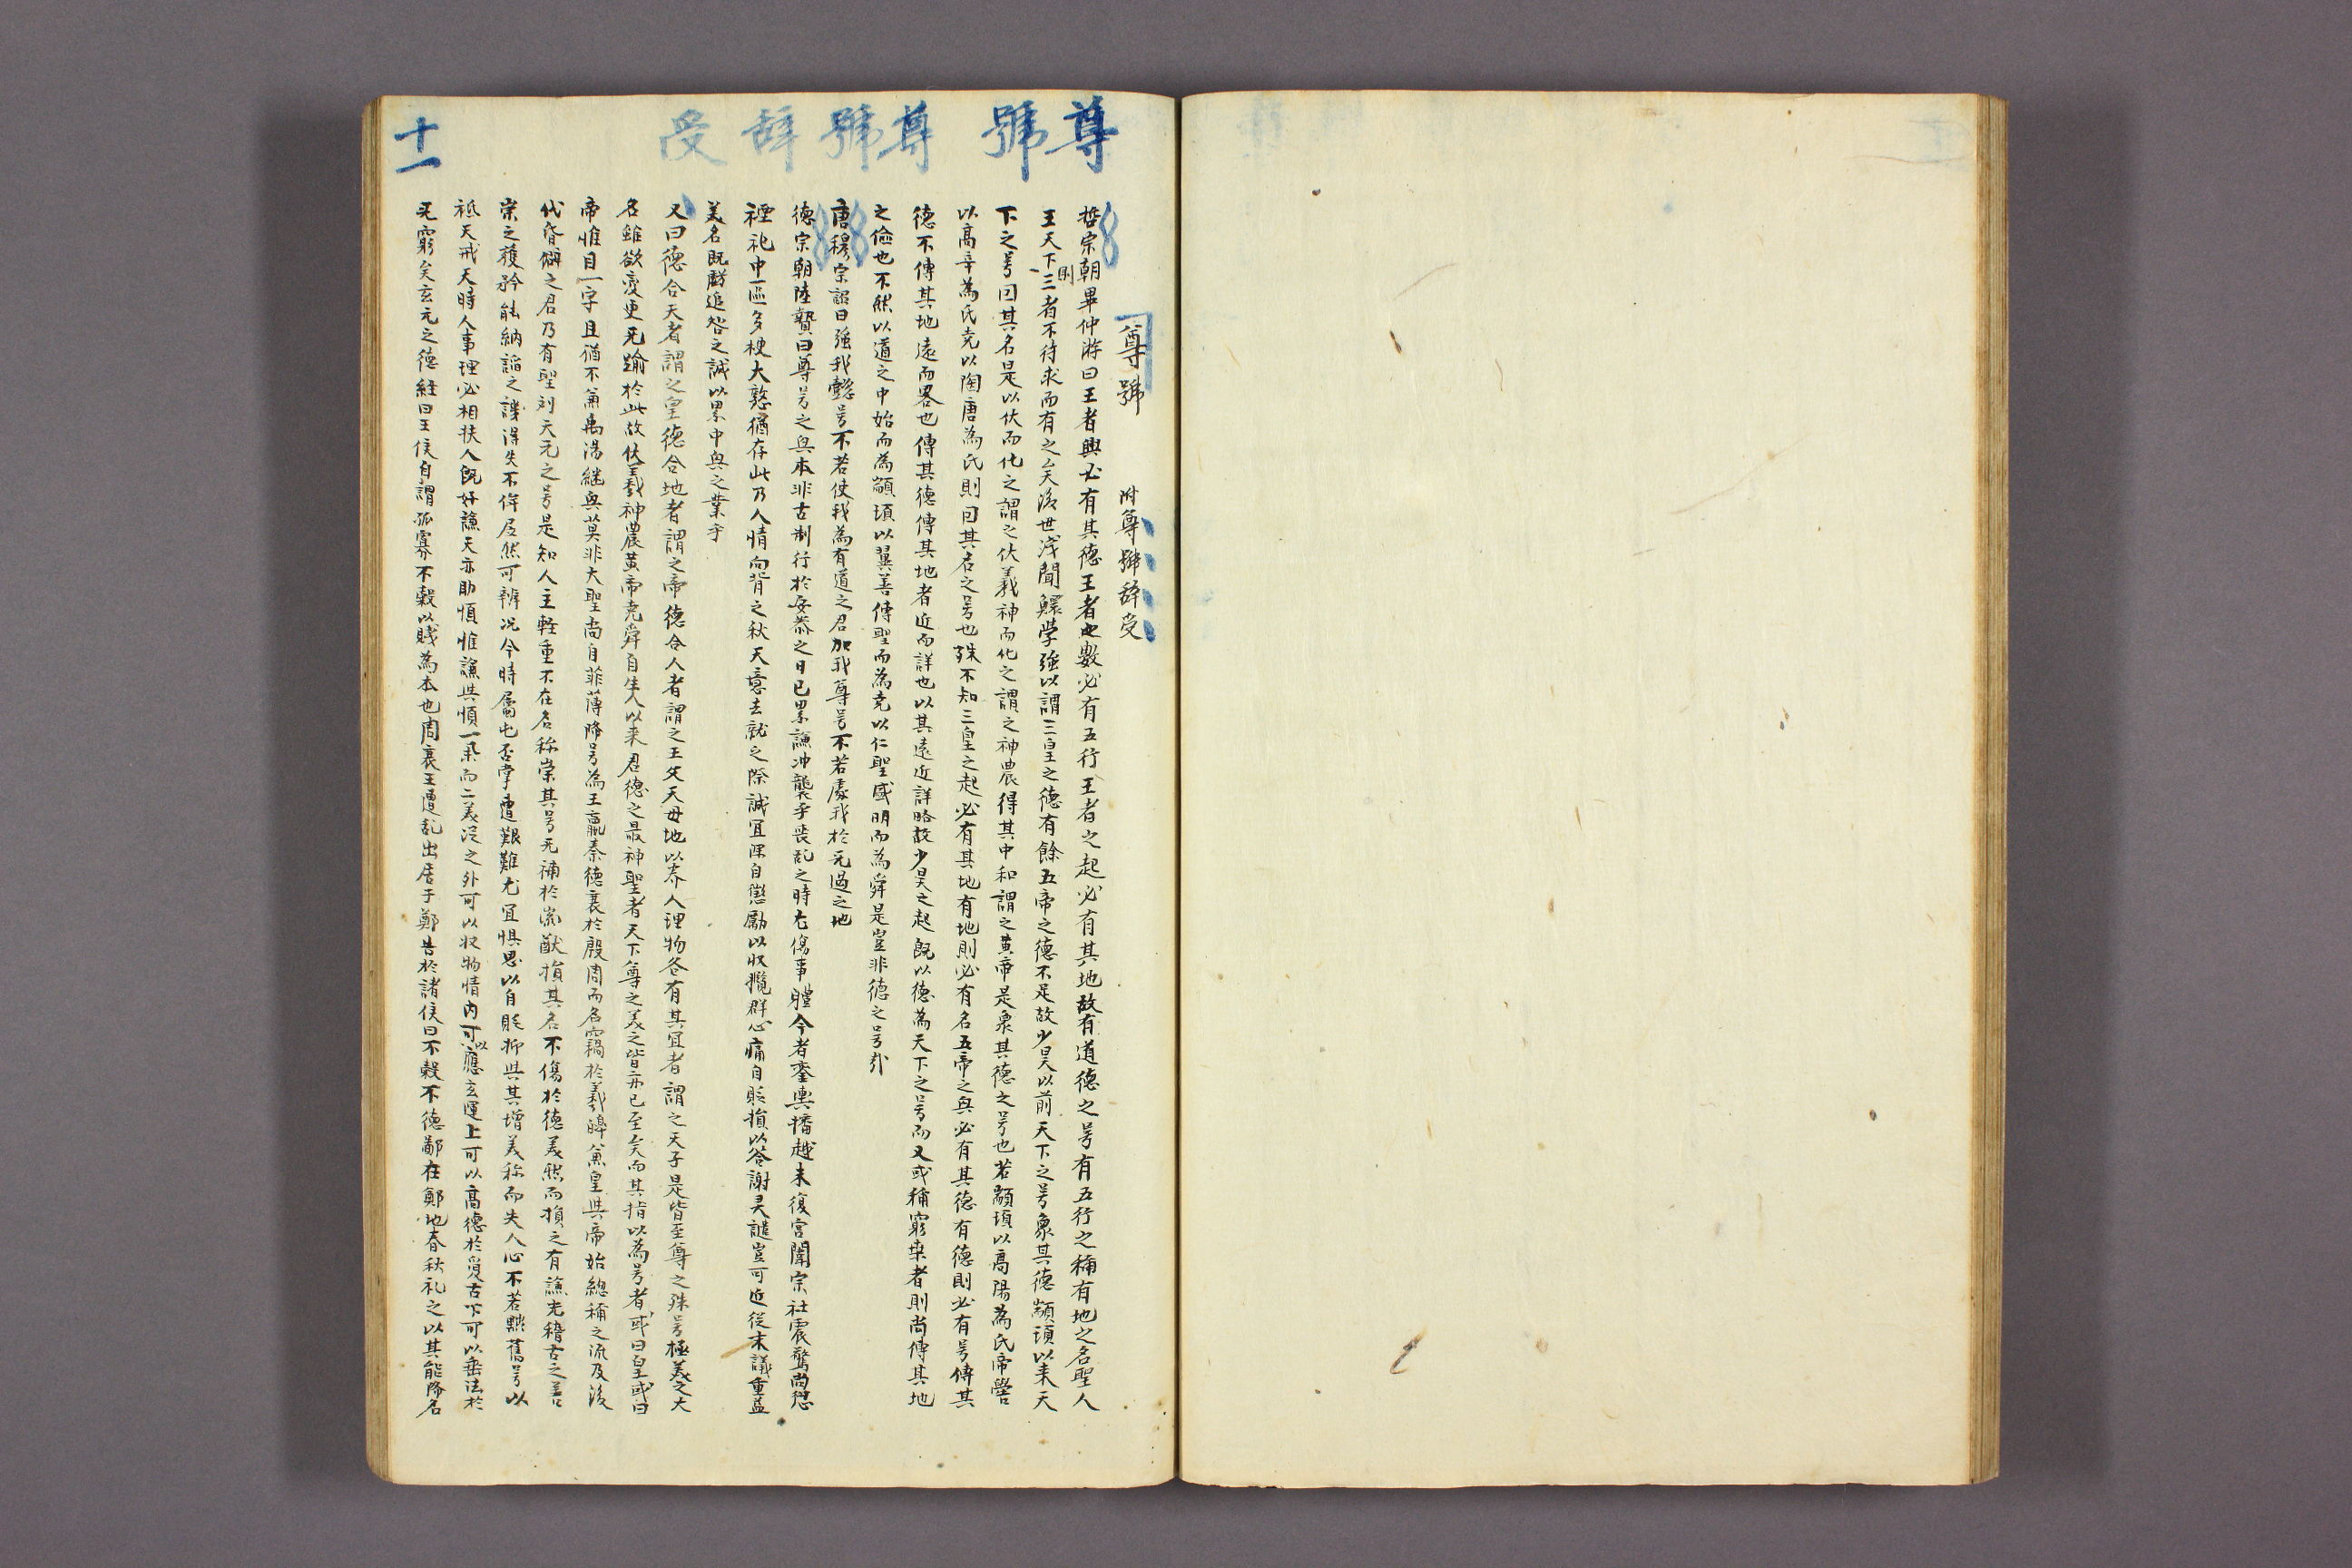 尊號 尊號辞受
十一
尊號 附尊號辞受
哲宗朝畢仲游曰王者興必有其德王者之數必有五行王者之起必有其地故有道德之号有五行之称有地之名聖人
王天下則三者不待求而有之矣後世浅聞鰥学強以謂三皇之德有餘五帝之德不足故少昊以前天下之号象其德顓頊以来天
下之号因其名是以伏而化之謂之伏羲神而化之謂之神農得其中和謂之黄帝是象其德之号也若顓頊以高陽為氏帝嚳
以高辛為氏尭以陶唐為氏則因其名之号也殊不知三皇之起必有其地有地則必有名五帝之興必有其德有德則必有号傳其
德不傳其地遠而畧也傳其德傳其地者近而詳也以其遠近詳略故少昊之起既以德為天下之号而又或称窮桑者則尚傳其地
之儉也不然以道之中始而為顓頊以翼善傳聖而為尭以仁聖盛明而為舜是豈非德之号引
唐穆宗詔曰強我懿号不若使我為有道之君加我尊号不若處我於无過之地
德宗朝陸贄曰尊号之興本非古制行於安泰之日已累謙冲襲乎喪乱之時尤傷事體今者鑾輿播越未復宮闈宗社震驚尚愆
禋祀中區多梗大憝猶存此乃人情向背之秋天意去就之際誠宜深自懲勵以収攬群心痛自貶損以荅謝灵譴豈可近従末議重益
美名既虧追咎之誠以累中興之業乎
又曰德合天者謂之皇德合地者謂之帝德合人者謂之王父天母地以养人理物各有其宜者謂之天子是皆至尊之殊号極美之大
名雖欲変更无踰於此故伏羲神農黄帝尭舜自生人以来君德之最神聖者天下尊之美之皆亦已至矣而其指以為号者或曰皇或曰
帝惟目一字且猶不兼禹湯継興莫非大聖尚自菲薄降号為王嬴秦德衰於殷周而名竊於羲皥兼皇与帝始総称之流及後
代昏僻之君乃有聖刘天元之号是知人主軽重不在名称崇其号无補於徽猷損其名不傷於德美然而損之有謙光稽古之善
崇之獲矜能納謟之譏得失不侔居然可辨况今時属屯否事遭艱難尤宜惧思以自貶抑与其增美称而失人心不若黜舊号以
祗天戒天時人事理必相扶人既好謙天亦助順惟謙与順一挙而二美従之外可以収物情内可以應玄運上可以高德於夐古下可以垂法於
无窮矣玄元之德経曰王侯自謂孤寡不穀以賎為本也周襄王遭乱出居于鄭告於諸侯曰不穀不德鄙在鄭地春秋礼之以其能降名